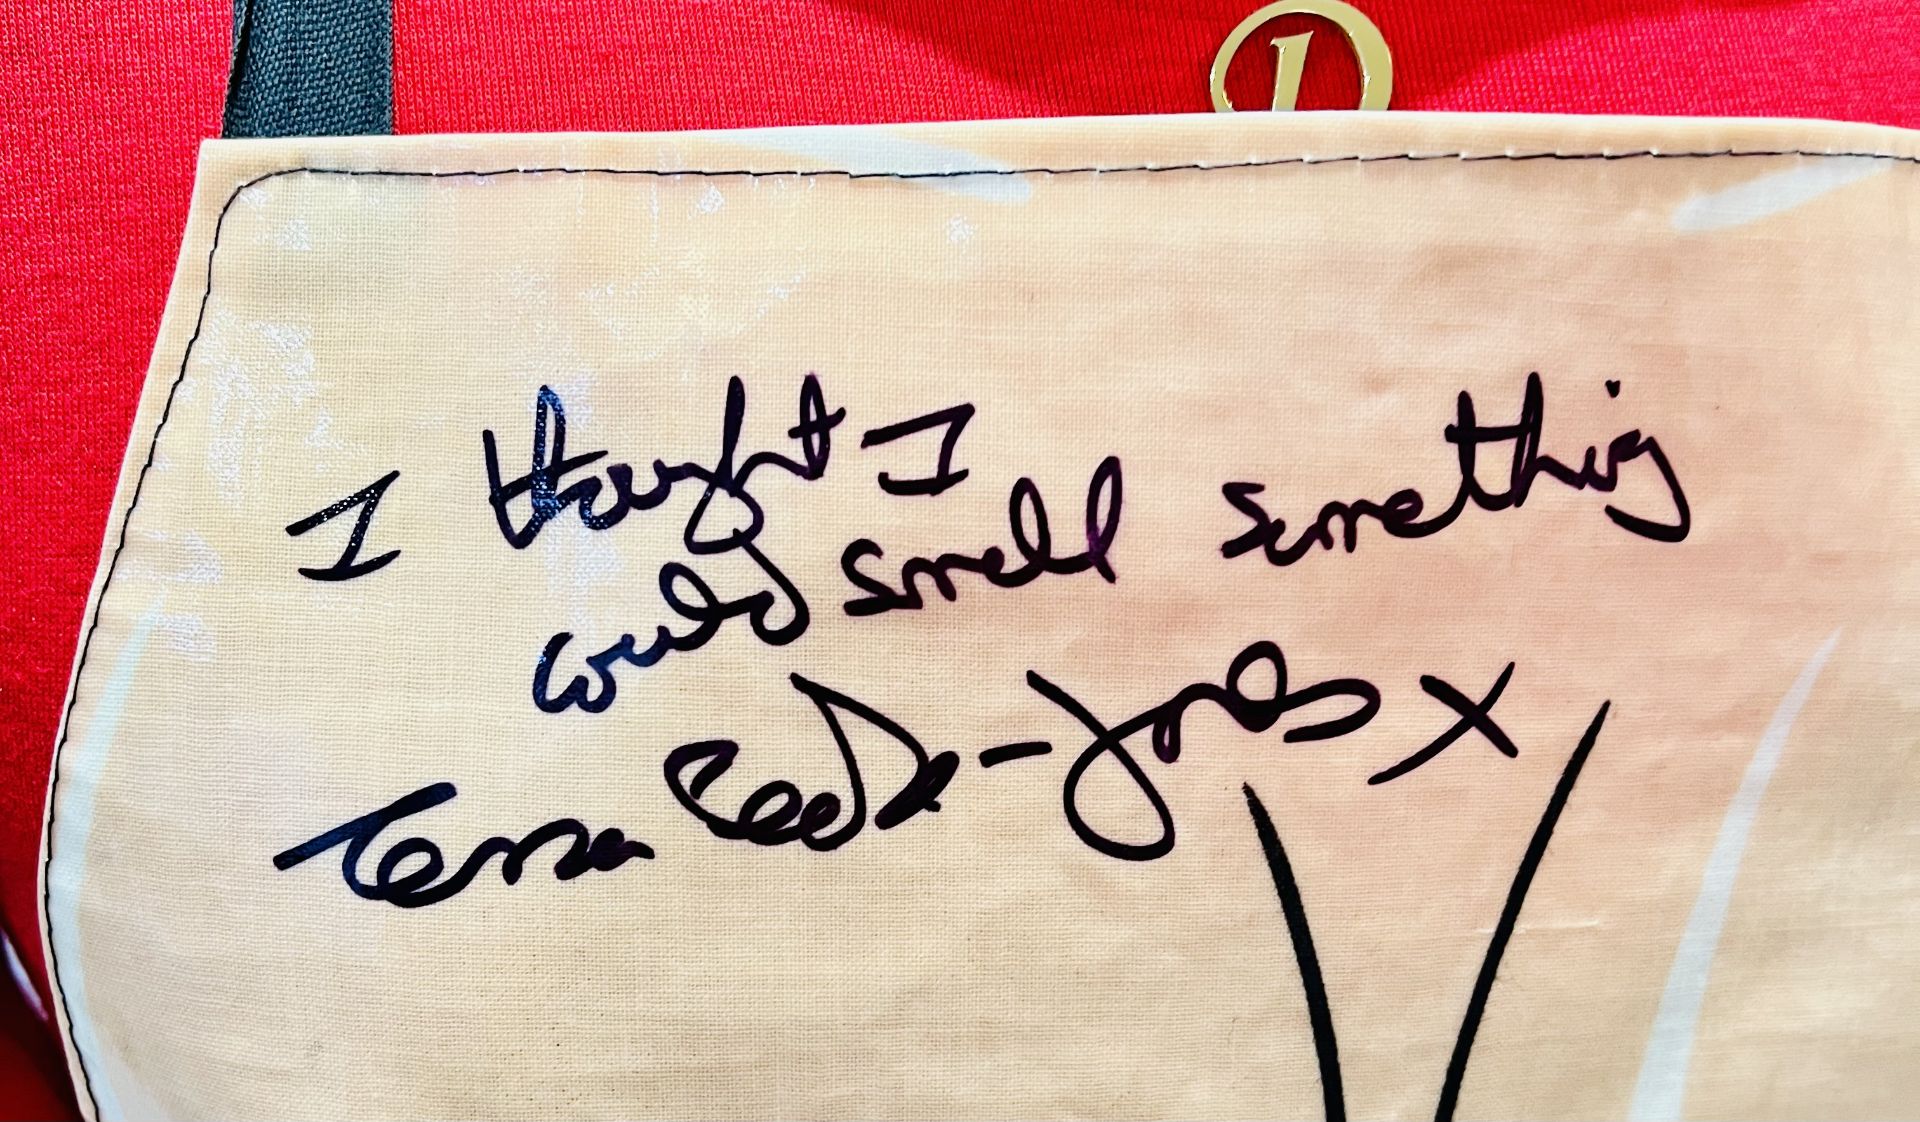 I thought I
could smell something
Tessa Peake-Jones X